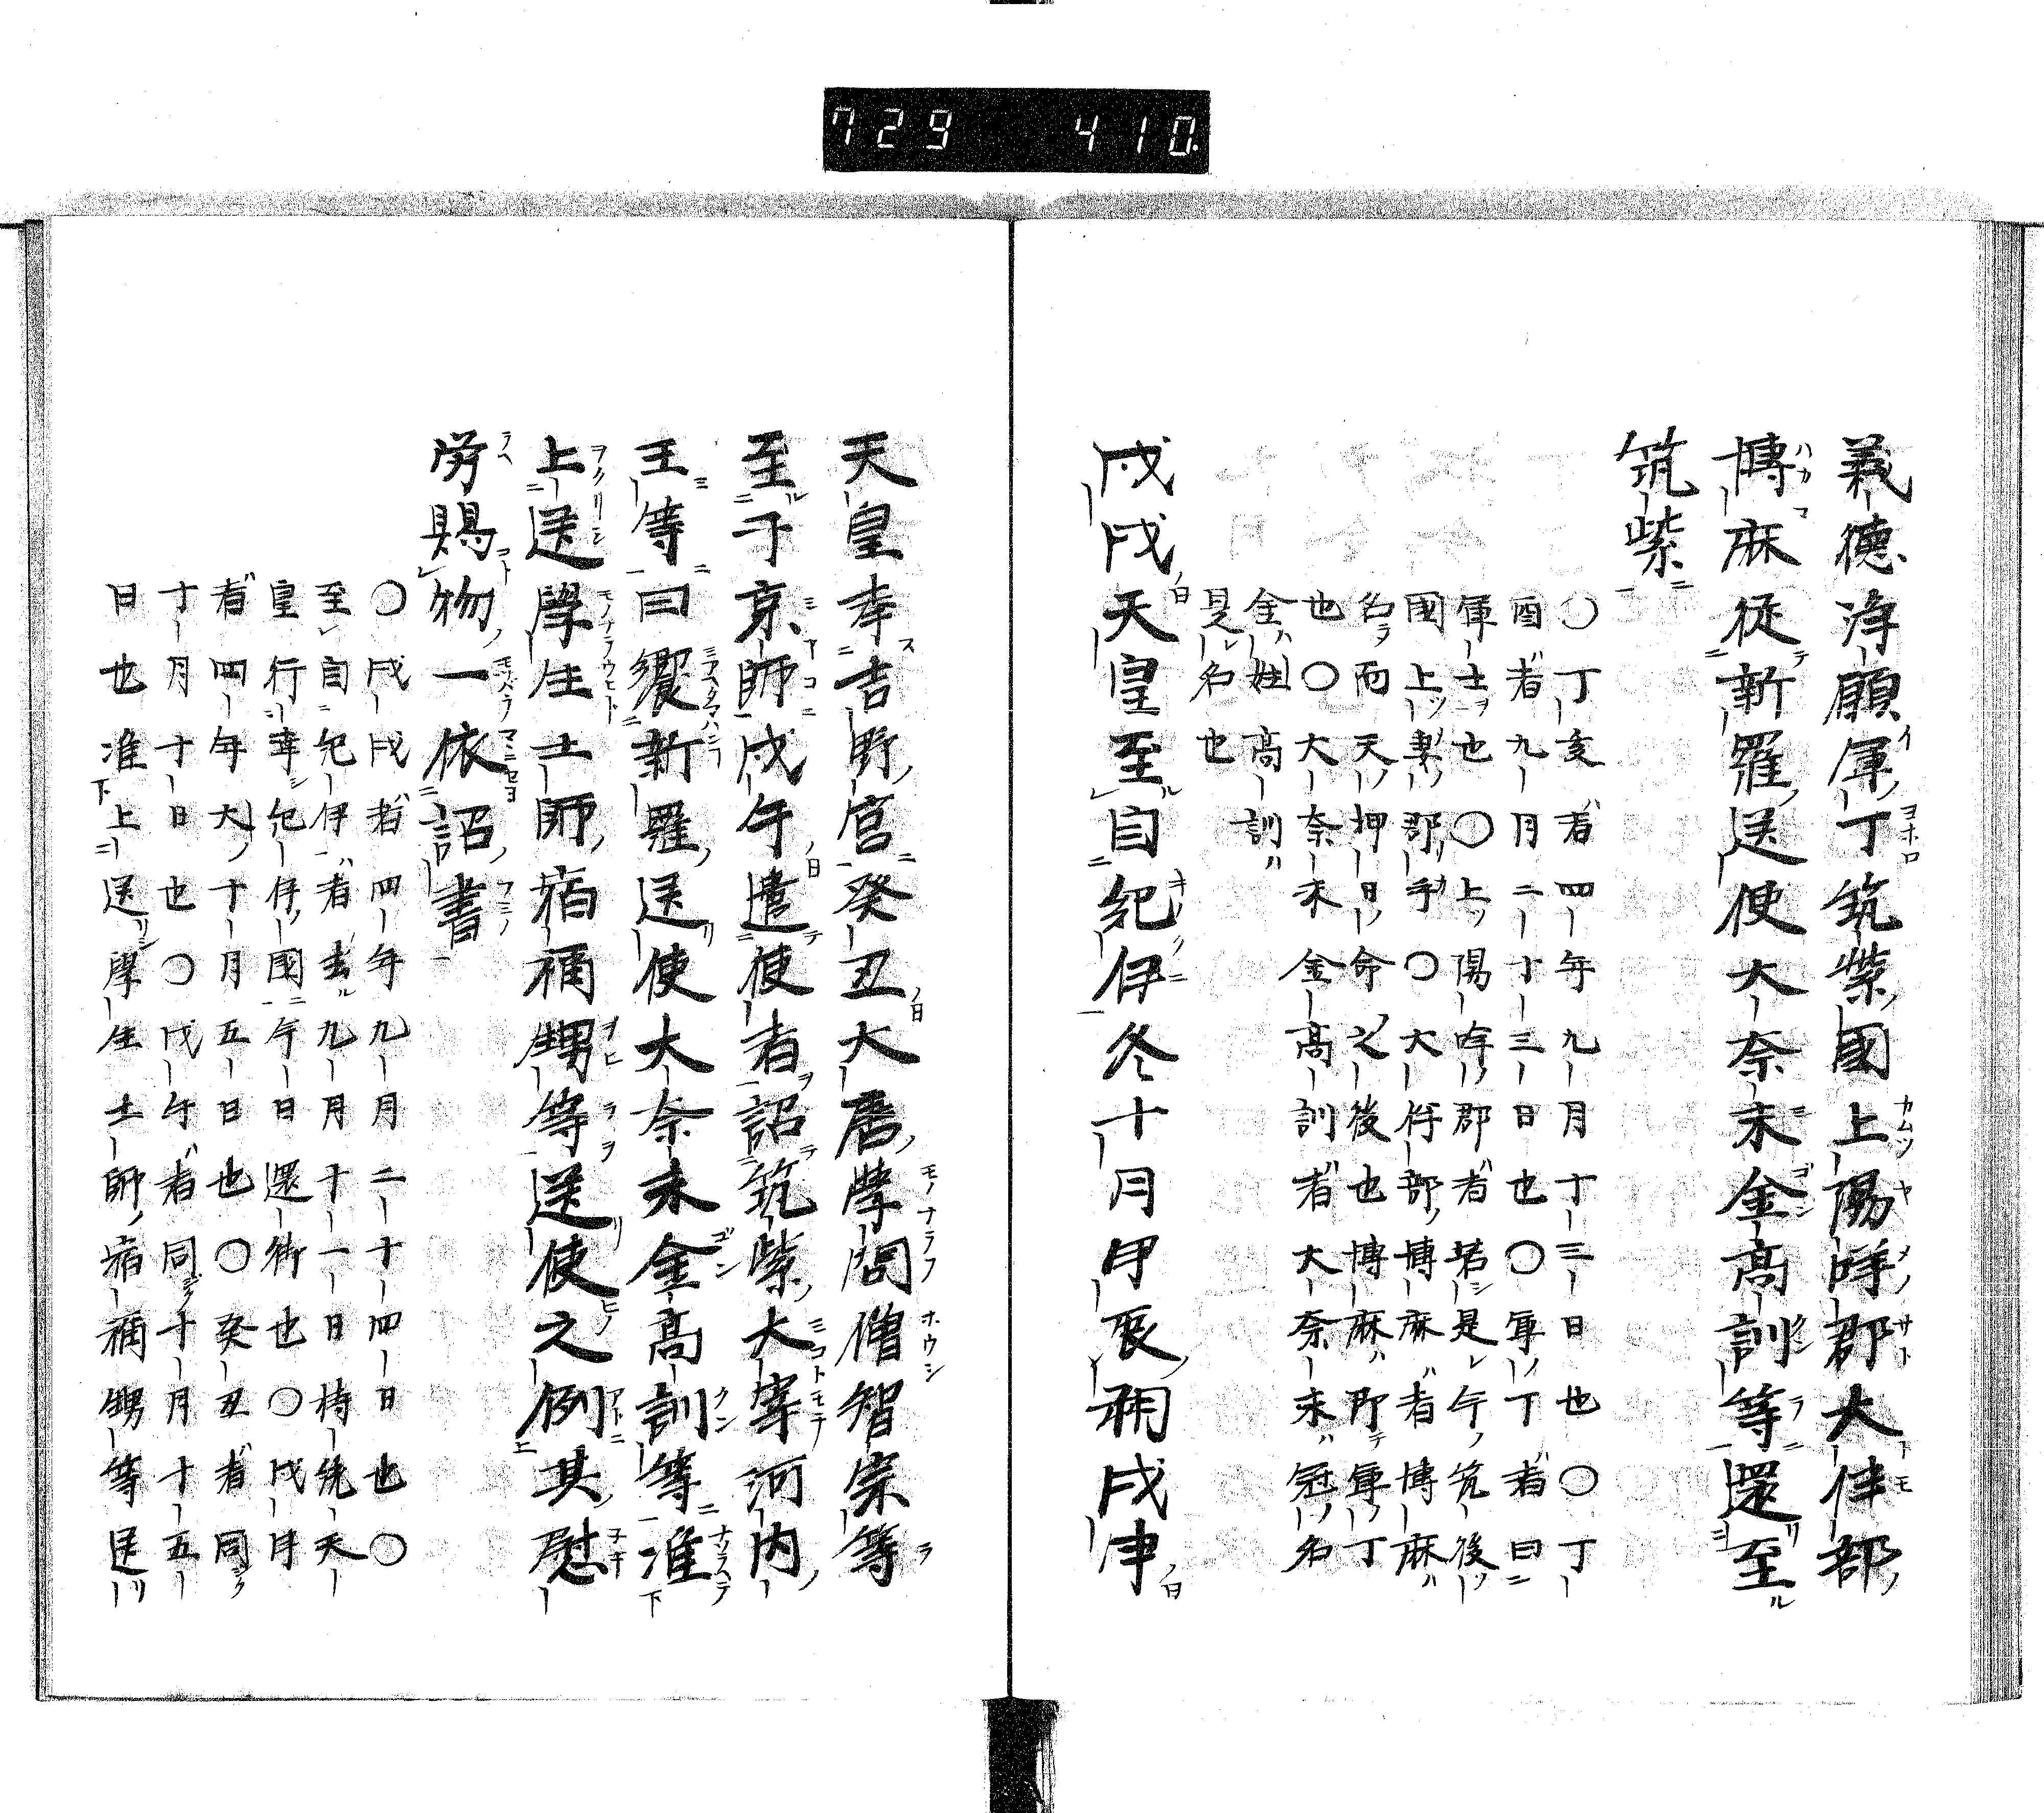 729 410
義德淨願軍丁筑紫國上陽咩郡大伴部
博麻從新羅送使大奈末金高訓等還至
筑紫
〇丁亥者四年九月丁三日也〇丁
酉者九月二十三日也〇軍丁者曰
軍士也〇上陽咩郡者若是今筑後
國上妻郡手〇大伴部博麻者博麻
名而天押日命之後也博麻即軍丁
也〇大奈末金高訓者大奈末冠名
金姓高訓
是名也
戊戌天皇至自紀伊冬十月甲辰朔戊申
天皇幸吉野宮癸丑大唐學問僧智宗等
至于京師戊午遣使者詔筑紫大宰河內
王等曰饗新羅送使大奈末金高訓等准
上送學生土師宿禰甥等送使之例其慰
勞賜物一依詔書
〇戊戌者四年九月二十四日也〇
至自紀伊者去九月十一日持統天
皇行幸紀伊國今日還御也〇戊申
者四年大十月五日也〇癸丑者同
十月十日也〇戊午者同十月十五
日也准上送學生土師宿禰甥等送